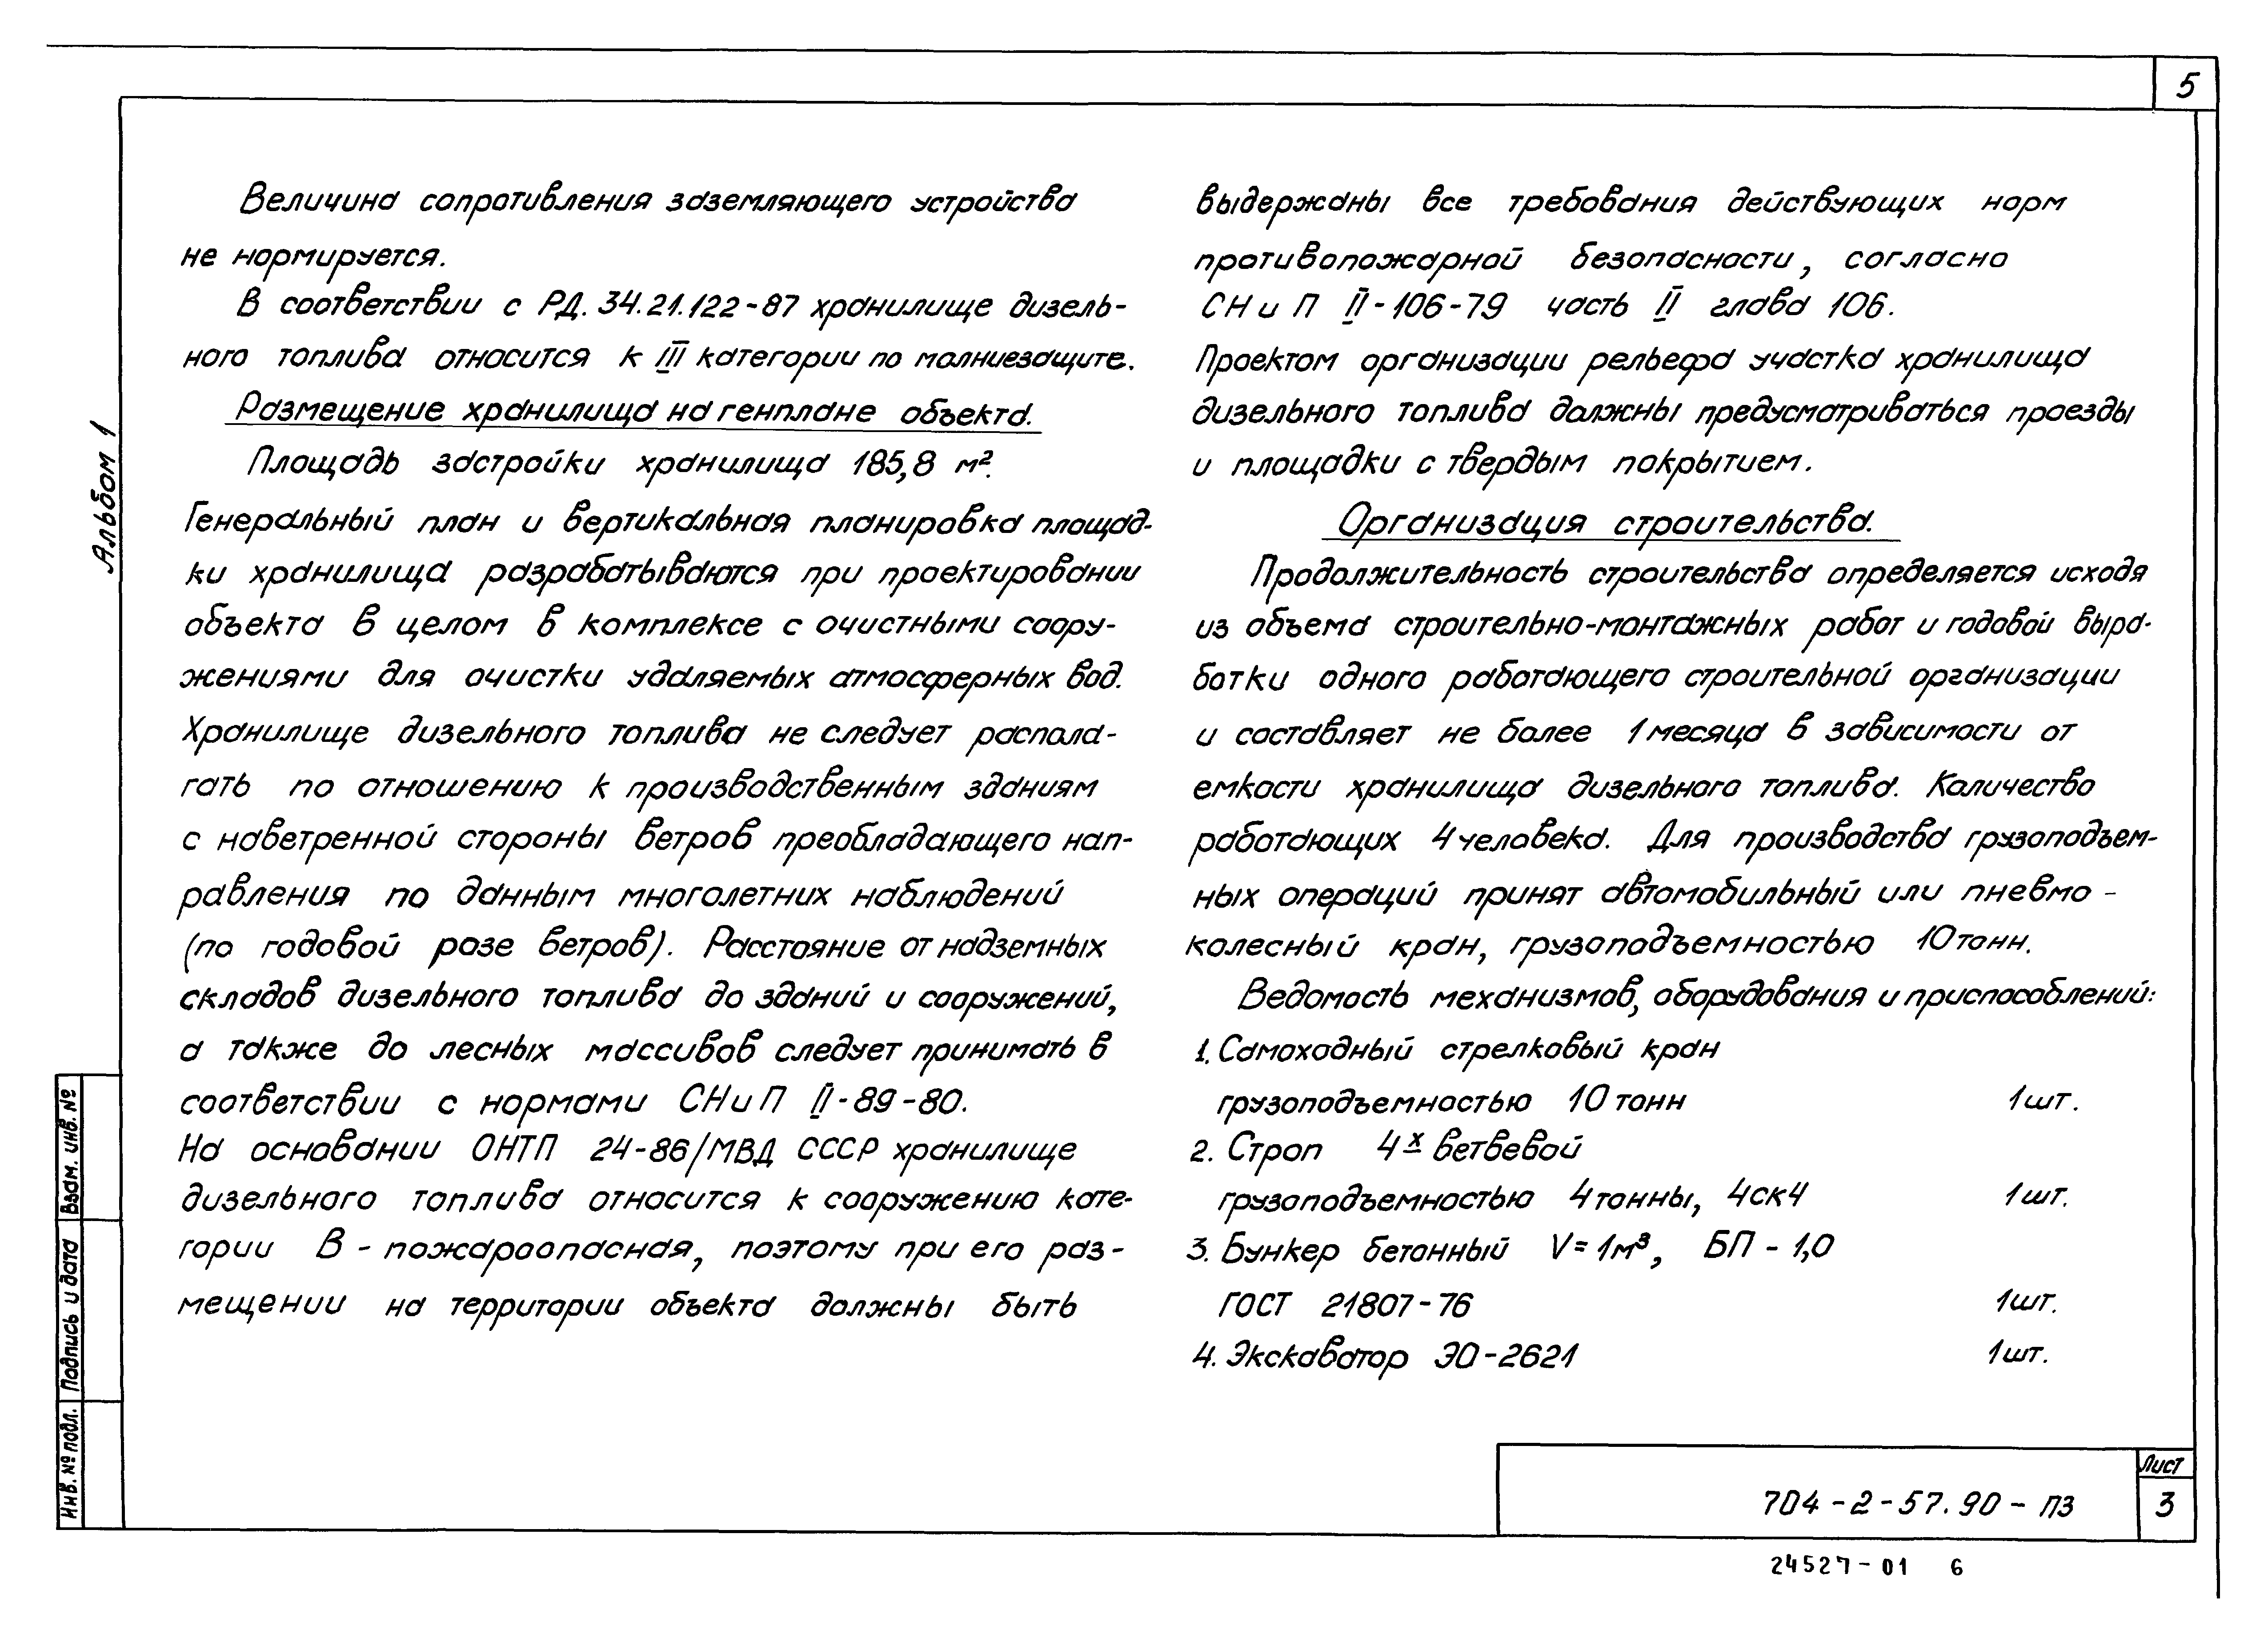 5
Альбом 1
Величина сопротивления заземляющего устройства
не нормируется.
В соответствии с РД. 34.21.122-87 хранилище дизель-
ного топлива относится к III категории по молниезащите.
Размещение хранилища на генплане объекта.
Площадь застройки хранилища 185,8 м².
Генеральный план и вертикальная планировка площад-
ки хранилища разрабатываются при проектировании
объекта в целом в комплексе с очистными соору-
жениями для очистки удаляемых атмосферных вод.
Хранилище дизельного топлива не следует распола-
гать по отношению к производственным зданиям
с наветренной стороны ветров преобладающего нап-
равления по данным многолетних наблюдений
(по годовой розе ветров). Расстояние от надземных
складов дизельного топлива до зданий и сооружений,
а также до лесных массивов следует принимать в
соответствии с нормами СНиП II-89-80.
На основании ОНТП 24-86/МВД СССР хранилище
дизельного топлива относится к сооружению кате-
гории В - пожароопасная, поэтому при его раз-
мещении на территории объекта должны быть
выдержаны все требования действующих норм
противопожарной безопасности, согласно
СНиП II-106-79 часть II глава 106.
Проектом организации рельефа участка хранилища
дизельного топлива должны предусматриваться проезды
и площадки с твердым покрытием.
Организация строительства.
Продолжительность строительства определяется исходя
из объема строительно-монтажных работ и годовой выра-
ботки одного работающего строительной организации
и составляет не более 1 месяца в зависимости от
емкости хранилища дизельного топлива. Количество
работающих 4 человека. Для производства грузоподъем-
ных операций принят автомобильный или пневмо-
колесный кран, грузоподъемностью 10 тонн.
Ведомость механизмов, оборудования и приспособлений:
1. Самоходный стрелковый кран
грузоподъемностью 10 тонн 1 шт.
2. Строп 4х ветвевой
грузоподъемностью 4 тонны, 4ск4 1 шт.
3. Бункер бетонный V=1м³, БП-1,0
ГОСТ 21807-76 1 шт.
4. Экскаватор ЭО-2621 1 шт.
Взам. инв. №
Подпись и дата
Инв. № подл.
704-2-57.90-ПЗ
Лист
3
24527-01 6